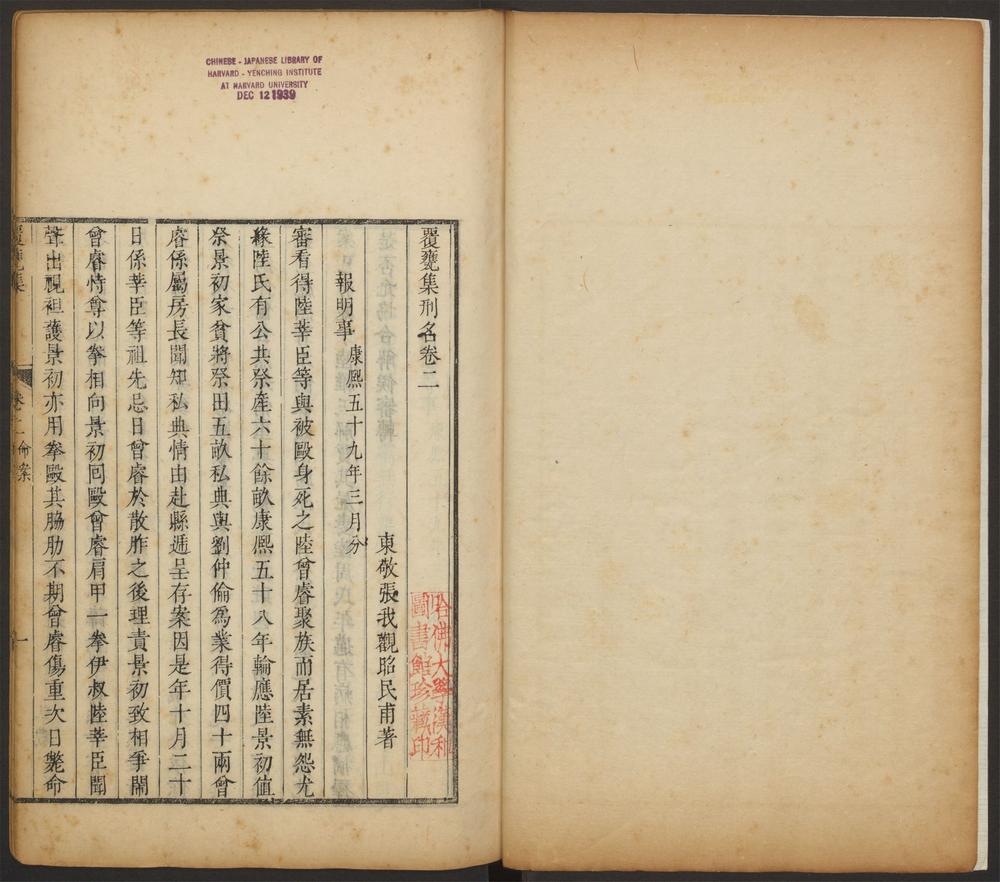 CHINESE - JAPANESE LIBRARY OF
HARVARD - YENCHING INSTITUTE
AT HARVARD UNIVERSITY
DEC 12 1939
哈佛大學漢和
圖書館珍藏印
覆甕集刑名卷二
東敬張我觀昭民甫著
報明事 康熈五十九年三月分
審看得陸莘臣等與被毆身死之陸曾睿聚族而居素無怨尤
緣陸氏有公共祭產六十餘畝康熈五十八年輪應陸景初值
祭景初家貧將祭田五畝私典與劉仲倫為業得價四十兩曾
睿係屬房長聞知私典情由赴縣遞呈存案因是年十月二十
日係莘臣等祖先忌日曾睿於散胙之後理責景初致相爭鬧
曾睿恃尊以拳相向景初回毆曾睿肩甲一拳伊叔陸莘臣聞
聲出視袒護景初亦用拳毆其脇肋不期曾睿傷重次日斃命
覆甕集
卷二 命案
一